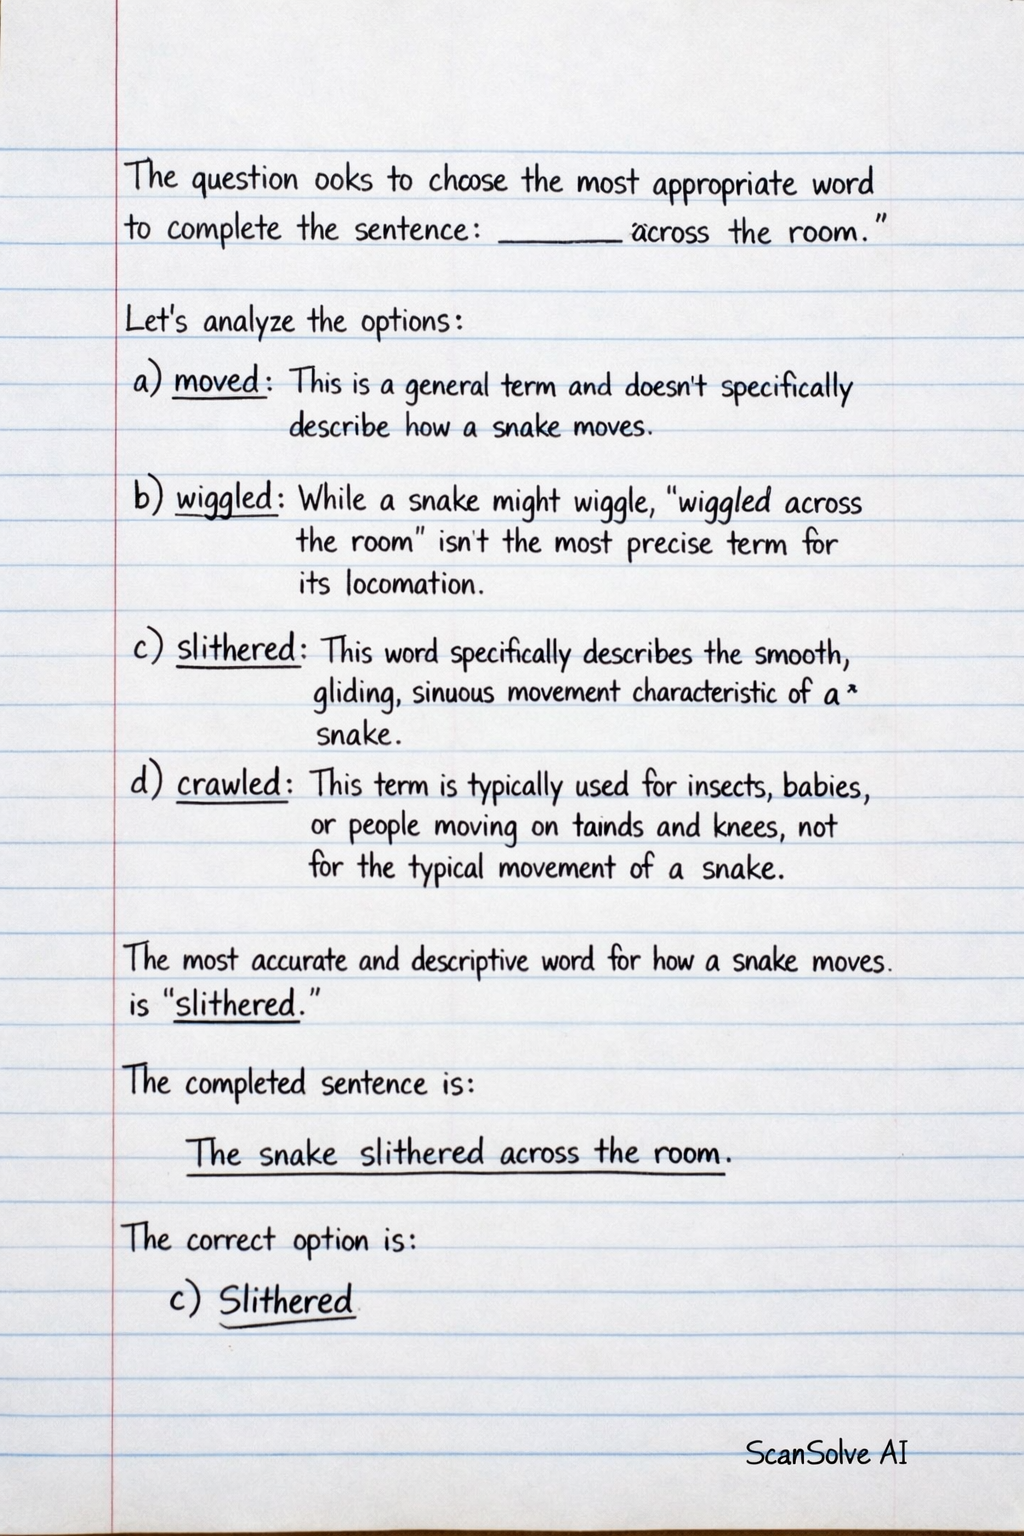 The question ooks to choose the most appropriate word
to complete the sentence: ______ across the room."
Let's analyze the options:
a) moved: This is a general term and doesn't specifically
describe how a snake moves.
b) wiggled: While a snake might wiggle, "wiggled across
the room" isn't the most precise term for
its locomation.
c) slithered: This word specifically describes the smooth,
gliding, sinuous movement characteristic of a
snake.
d) crawled: This term is typically used for insects, babies,
or people moving on tainds and knees, not
for the typical movement of a snake.
The most accurate and descriptive word for how a snake moves.
is "slithered."
The completed sentence is:
The snake slithered across the room.
The correct option is:
c) Slithered
ScanSolve AI